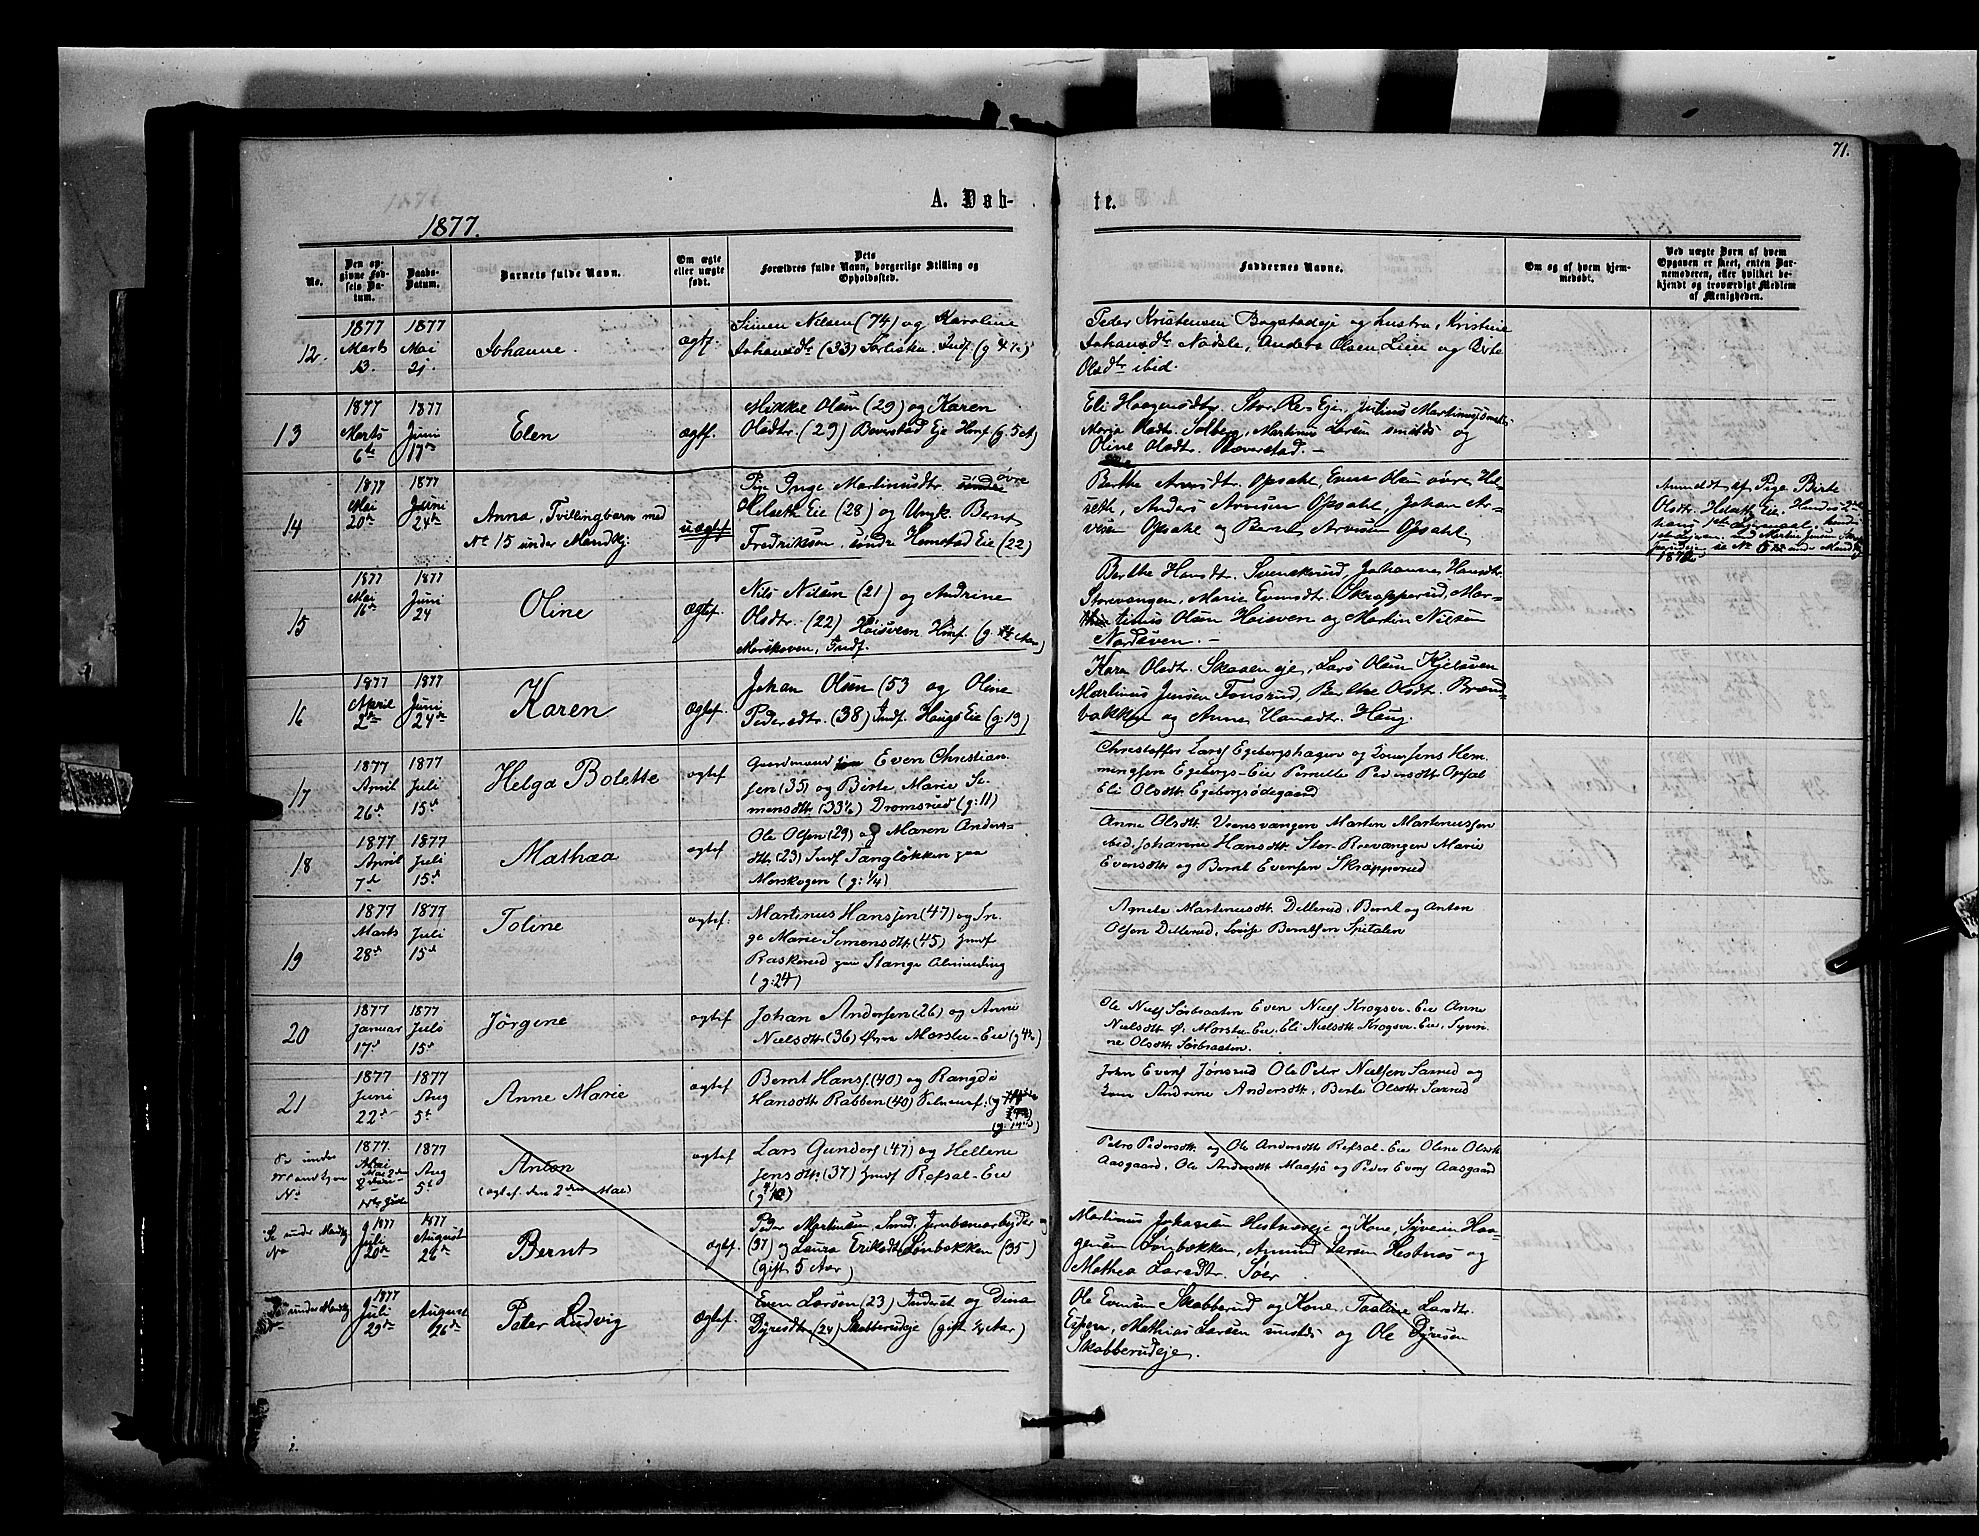 71.
A. Døb-
te.
1877.
No.
Den op-
givne Fød-
sels Da-
tum.
Daabs-
Datum.
Barnets fulde Navn.
Om ægte
eller uægte
født.
Dets
Forældres fulde Navn, borgerlige Stilling og
Opholdssted.
Faddernes Navne.
Om og af hvem hjem-
medøbt.
Ved uægte Børn af hvem
Opgaven er skeet, enten Bar-
nemoderen, eller hvilket be-
kjendt og troværdigt Medlem
af Menigheden.
12.
1877
Marts
13.
1877
Mai
21.
Johanne.
ægtf.
Simen Nilsen (74) og Karoline
Johansdtr (33)
Peder Kristensen Bagstadeje og hustru, Kristine
Johansdtr Nødsle, Anders Olsen Lien og Birte
Olsdtr ibid.
13
1877
Marts
6te
1877
Juni
17de
Elen
ægtf.
Mikke Olsen (29) og Karen
Olsdtr. (29) Beverstad Eje
Eli Haagensdtr. Stor Res Eje, Julius
Marja Olsdtr. Solberg, Martinus Larsen smstds og
Oline Olsdtr. Bæverstad.
14
1877
Mai
20de
1877
Juni
24de
Anna, Tvillingbarn med
No 15 under Mandkj:
uægtef
Pige Inge Martinusdtr. søndre øvre
Helseth Eie (28) og Ungk. Bernt
Fredriksen, søndre Hemstad Eie (22)
Berthe Arvesdtr. Opsahl, Even Olsen øvre Hel-
seth, Anders Arvesen Opsahl, Johan Ar-
vesen Opsahl og Bernt Arvesen Opsahl
Anmeldt af Pige Birte
Olsdtr. Helseth Eie. Hendes 2det
15
1877
Mai
16de
1877
Juni
24
Oline
ægtef.
Nils Nilsen (21) og Andrine
Olsdtr. (22) Hoisveen
Morskoven, Indf.
Berthe Hansdtr. Svenskerud, Johannes Hansdtr.
Storevangen, Marie Evensdtr. Skrapperud, Mar-
tinus Olsen Hoisveen og Martin Nilsen
Nordsveen.
16
1877
April
2den
1877
Juni
24de
Karen
ægtef.
Johan Olsen (53 og Oline
Pedersdtr. (38) Indf. Haugs Eie (g: 19)
Kari Olsdtr. Skaaen eje, Lars Olsen Kjelsveen
Martinus Jensen Fonsrud, Berthe Olsdtr. Brænd-
bakken og Anne Hansdtr. Haug.
17
1877
April
26d
1877
Juli
15d
Helga Bolette
ægtef
Gaardmand Even Christian-
sen (35) og Birte Marie Si-
mensdtr. (33½) Dromsrud (g: 11)
Christoffer Larsf Egebergshagen og Jens Hem-
mingsen Egebergs-Eie Pernille Pedersdtr. Opsal
Eli Olsdtr. Egebergsødegaard
18
1877
April
7d
1877
Juli
15d
Mathea
ægtef
Ole Olsen (29) og Maren Anders-
dtr. (23) Indf Tangløkken paa
Morskogen (g: 1/4)
Anne Olsdtr. Veensvangen Martin Martinussen
ibid. Johanne Hansdtr. Stor-Roevangen Marie
Evensdtr og Bernt Evensen Skrapperud
19
1877
Marts
28d
1877
Juli
15d
Toline
ægtef:
Martinus Hansen (47) og In-
ge Marie Simensdtr. (45) Indf
Raskerud paa Stange Almending
(g: 24)
Agnete Martinusdtr. Dellerud, Bernt og Anton
Olsen Dellerud, Lovise Berntsen Spitalen
20
1877
Januar
17d
1877
Juli
15d
Jörgine
ægtef
Johan Andersen (26) og Anne
Nielsdtr. (36) Øvre Morstu-Eie (g 4½)
Ole Nielf Sørbraaten Even Nielf Krogsv.-Eie Anne
Nielsdtr. Ø: Morstu-Eie, Eli Nielsdtr. Krogsv-Eie, Syveri-
ne Olsdtr. Sørbraaten.
21
1877
Juni
22d
1877
Aug
5t
Anne Marie
ægtef
Bernt Hansf. (40) og Rangdi
Hansdtr. Rabben (40) Selveierf: (g
(g: 14½)
John Evenf Jönsrud Ole Peter Nielsen Saxrud og
Kone Andrine Andersdtr, Berte Olsdtr. Saxrud
Se under
Mandkjøn
No
1877.
Mai
1877
Aug
5t
Anton
(ægtef. den 2den Mai)
ægtef
Lars Gundersf (47) og Hellene
Jensdtr. (37) Indf Refsal-Eie
Petro Pedersdtr. og Ole Andersdtr Refsal-Eie Oline Olsdtr
Aasgaard, Ole Andersdtr. Maasjø og Peder Evenf Aasgaard
Se under Mandkj
No
1877
Juli
20de
1877
August
26de
Bernt
ægtef.
Peder Martinsen, Smed, Jernbanearbejder
(37) og Laura Eriksdtr. Lønbakken (35)
(gift 5 Aar)
Martinus Johansen Hestnæseje og Kone, Syverin Haa-
gensen Lønbækken, Amund Larsen Hestnæs og
Mathea Larsdtr. Søer
Se under Mandkj
1877
Juli
29de
August
26de
Peter Ludvig
ægtef.
Even Larsen (23) Inderst og Dina
Dyresdtr. (24) Skabberudeje (gift ¼ Aar)
Ole Evensen Skabberud og Kone, Taaline Larsdtr.
Eipen, Mathias Larsen smstds og Ole Dyresen
Skabberudeje.
2.